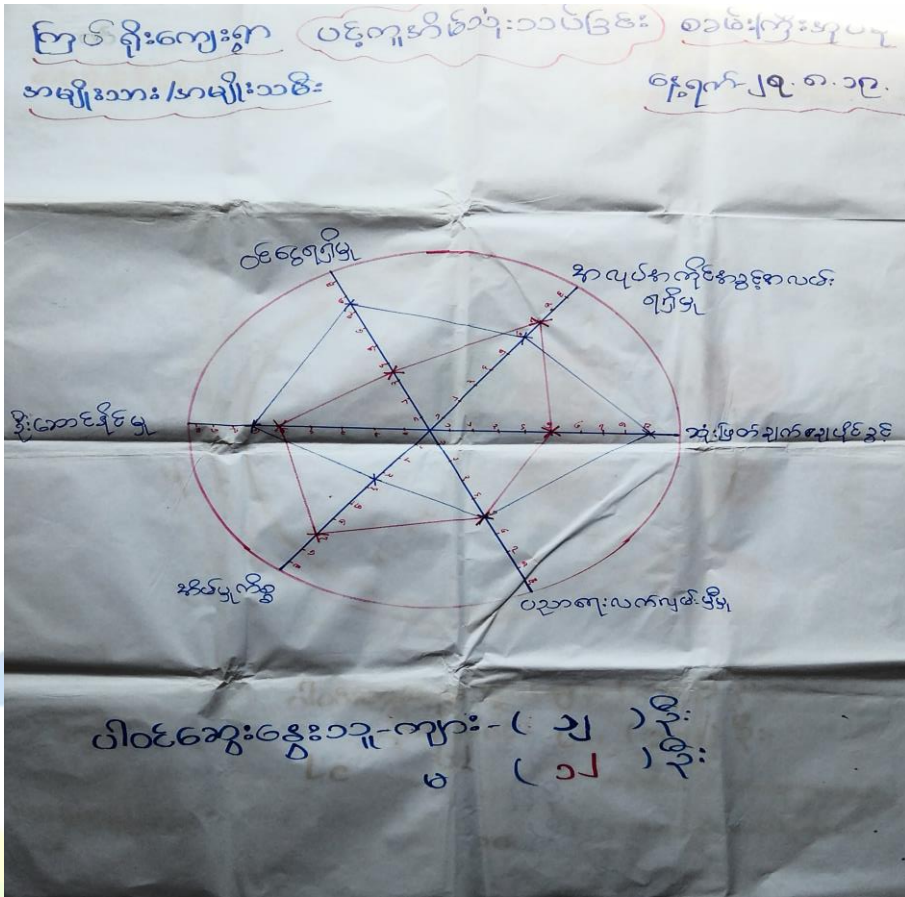 ကြပ်ရိုးကျေးရွာ ပင့်ကူအိမ်သုံးသပ်ခြင်း
အမျိုးသား/အမျိုးသမီး နေ့ရက်-၂၃.၈.၁၉.
ဝင်ငွေရရှိမှု
အလုပ်အကိုင်အခွင့်အလမ်း
ရရှိမှု
ဦးဆောင်နိုင်မှု
ဆုံးဖြတ်ချက်ချပိုင်ခွင့်
အိမ်မှုကိစ္စ
ပညာရေးလက်လှမ်းမှီမှု
ပါဝင်ဆွေးနွေးသူ-ကျား-( ၁၂ )ဦး
မ ( ၁၂ )ဦး